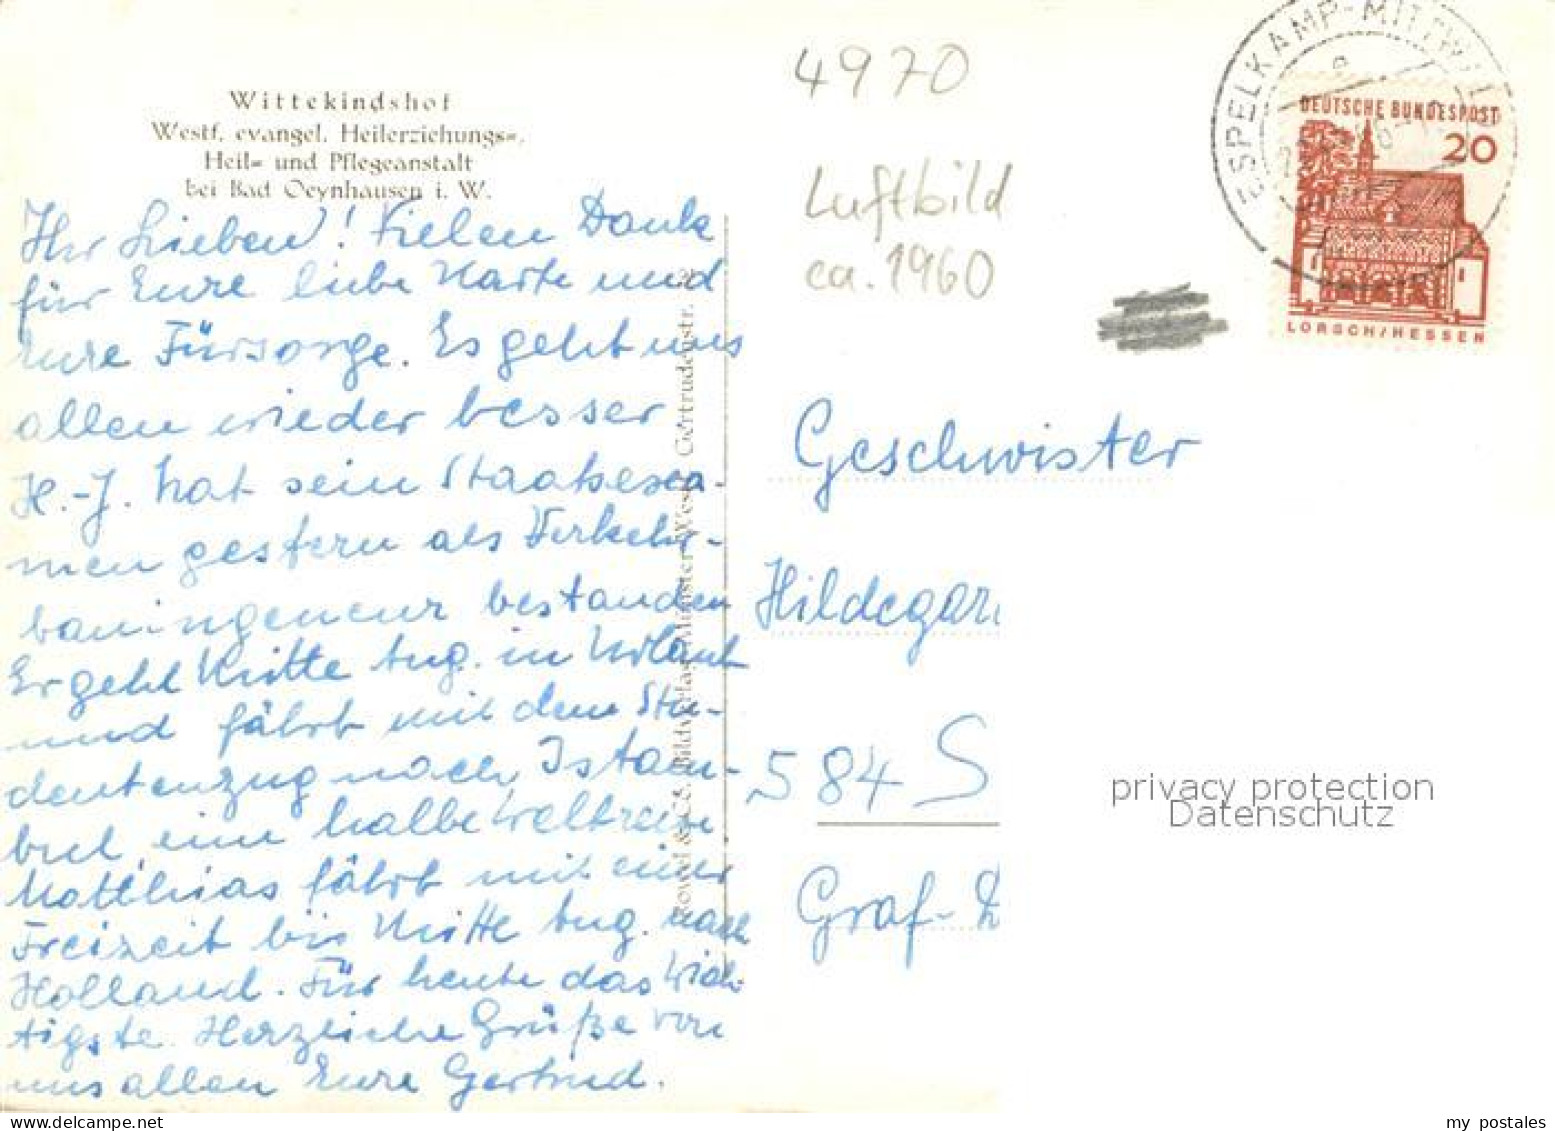 Wittekindshof
Westf. evangel. Heilerziehungs=,
Heil= und Pflegeanstalt
bei Bad Oeynhausen i. W.
Ihr Lieben! Vielen Dank
für Eure liebe Karte und
eure Fürsorge. Es geht uns
allen wieder besser
H.-J. hat sein Staatsexa-
men gestern als Verkehrs-
bauingenieur bestanden
Er geht Mitte Aug. in Urlaub
und fährt mit dem Stu-
dentenzug nach Istam-
bul, eine halbe Weltreise.
Matthias fährt mit einer
Freizeit bis Mitte Aug. nach
Holland. Für heute das Wich-
tigste. Herzliche Grüße von
uns allen Eure Gertrud.
Bildverlag Münster Westf. Gertrudenstr.
4970
Luftbild
ca. 1960
ESPELKAMP-MITTWALD
DEUTSCHE BUNDESPOST
20
LORSCH/HESSEN
Geschwister
Hildegar
584 S
Graf-
privacy protection
Datenschutz
my postales